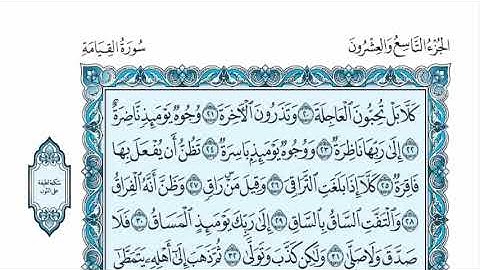 الجُزْءُ التَّاسِعُ وَالعِشْرُونَ
سُورَةُ القِيَامَةِ
كَلَّا بَلْ تُحِبُّونَ الْعَاجِلَةَ ٢٠ وَتَذَرُونَ الْآخِرَةَ ٢١ وُجُوهٌ يَوْمَئِذٍ نَاضِرَةٌ
٢٢ إِلَى رَبِّهَا نَاظِرَةٌ ٢٣ وَوُجُوهٌ يَوْمَئِذٍ بَاسِرَةٌ ٢٤ تَظُنُّ أَن يُفْعَلَ بِهَا
فَاقِرَةٌ ٢٥ كَلَّا إِذَا بَلَغَتِ التَّرَاقِيَ ٢٦ وَقِيلَ مَنْ رَاقٍ ٢٧ وَظَنَّ أَنَّهُ الْفِرَاقُ
٢٨ وَالْتَفَّتِ السَّاقُ بِالسَّاقِ ٢٩ إِلَى رَبِّكَ يَوْمَئِذٍ الْمَسَاقُ ٣٠ فَلَا
صَدَّقَ وَلَا صَلَّى ٣١ وَلَكِن كَذَّبَ وَتَوَلَّى ٣٢ ثُمَّ ذَهَبَ إِلَى أَهْلِهِ يَتَمَطَّى
سكتة لطيفة
على النون